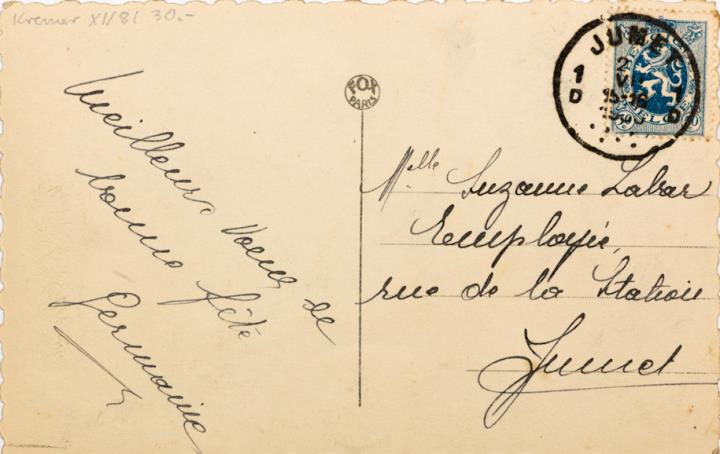 Kremer XI/81 30.-
Meilleurs Voeux de
bonne fête
Germaine
FOX
PARIS
JUMET
1 D
2
VI
15-16
1 D
Melle Suzanne Labar
Employée,
rue de la Station
Jumet